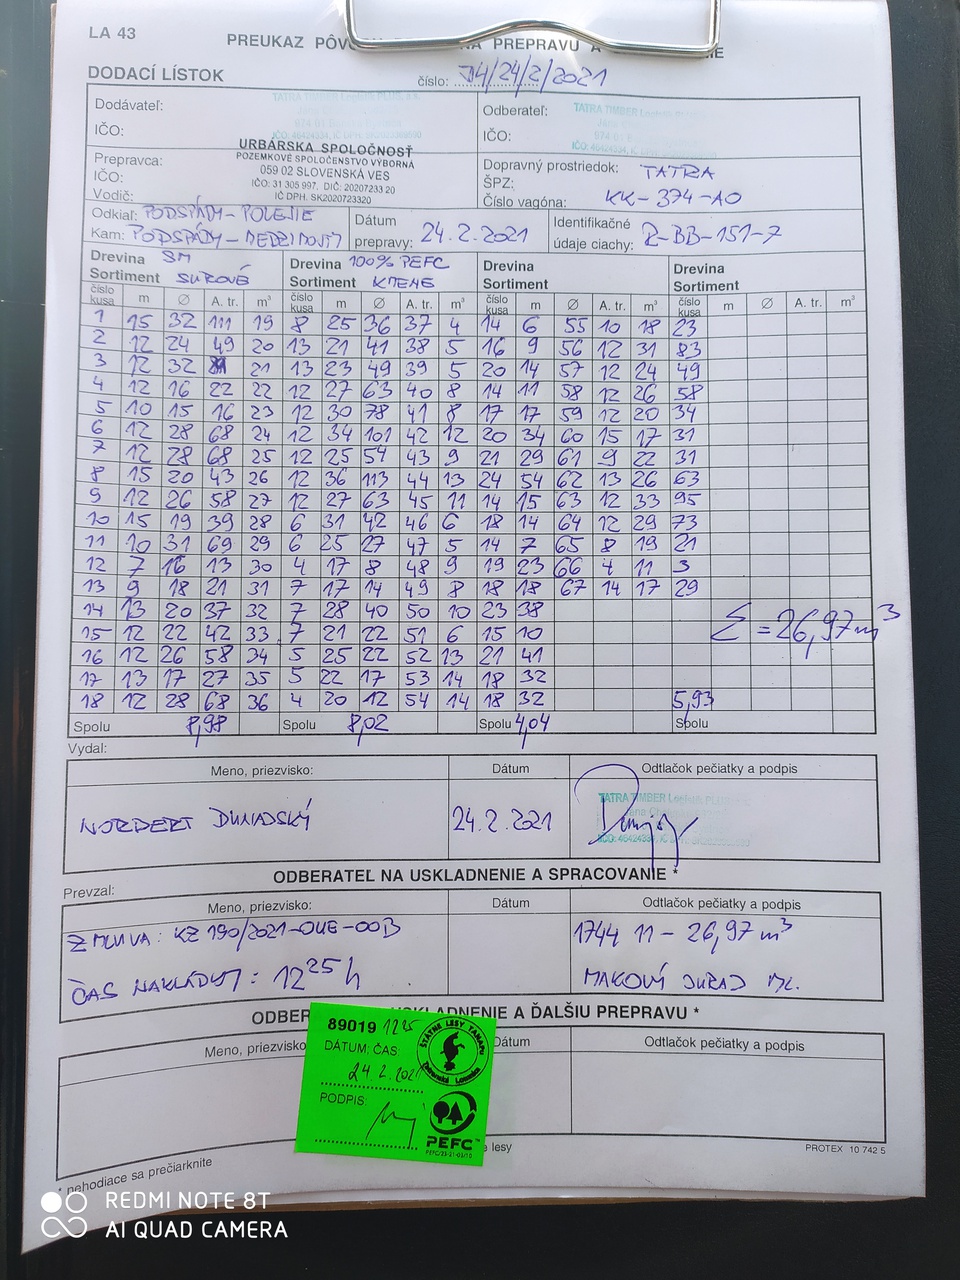 LA 43
PREUKAZ PÔV PREPRAVU A
DODACÍ LÍSTOK číslo: D4/24/2/2021
Dodávateľ: TATRA TIMBER Odberateľ: TATRA TIMBER
IČO: IČO:
URBÁRSKA SPOLOČNOSŤ
POZEMKOVÉ SPOLOČENSTVO VÝBORNÁ
059 02 SLOVENSKÁ VES
IČO: 31 305 997, DIČ: 20207233 20
IČ DPH. SK2020723320
Prepravca:
IČO:
Vodič:
Dopravný prostriedok: TATRA
ŠPZ:
Číslo vagóna: KK-374-AO
Odkiaľ: PODSPÁDY-POLEJIE
Kam: PODSPÁDY-
Dátum prepravy: 24.2.2021
Identifikačné údaje ciachy: R-BB-151-7
Drevina SM Drevina 100% PEFC Drevina Drevina
Sortiment SUROVÉ Sortiment KMENE Sortiment Sortiment
číslo kusa m Ø A. tr. m³ číslo kusa m Ø A. tr. m³ číslo kusa m Ø A. tr. m³ číslo kusa m Ø A. tr. m³
1 15 32 111 19 8 25 36 37 4 14 6 55 10 18 23
2 12 24 49 20 13 21 41 38 5 16 9 56 12 31 83
3 12 32 21 13 23 49 39 5 20 14 57 12 24 49
4 12 16 22 22 12 27 63 40 8 14 11 58 12 26 58
5 10 15 16 23 12 30 78 41 8 17 17 59 12 20 34
6 12 28 68 24 12 34 101 42 12 20 34 60 15 17 31
7 12 28 68 25 12 25 54 43 9 21 29 61 9 22 31
8 15 20 43 26 12 36 113 44 13 24 54 62 13 26 63
9 12 26 58 27 12 27 63 45 11 14 15 63 12 33 95
10 15 19 39 28 6 31 42 46 6 18 14 64 12 29 73
11 10 31 69 29 6 25 27 47 5 14 7 65 8 19 21
12 7 16 13 30 4 17 8 48 9 19 23 66 4 11 3
13 9 18 21 31 7 17 14 49 8 18 18 67 14 17 29
14 13 20 37 32 7 28 40 50 10 23 38
15 12 22 42 33 7 21 22 51 6 15 10
Σ = 26,97 m³
16 12 26 58 34 5 25 22 52 13 21 41
17 13 17 27 35 5 22 17 53 14 18 32
18 12 28 68 36 4 20 12 54 14 18 32 5,93
Spolu 8,98 Spolu 8,02 Spolu 4,04 Spolu
Vydal:
Meno, priezvisko: Dátum Odtlačok pečiatky a podpis
NORBERT 24.2.2021
TATRA TIMBER
ODBERATEĽ NA USKLADNENIE A SPRACOVANIE *
Prevzal:
Meno, priezvisko: Dátum Odtlačok pečiatky a podpis
ZMLUVA: KZ 190/2021-OUE-OOB 1744 11 - 26,97 m³
ČAS NAKLÁDKY: 12 25 h
ODBER USKLADNENIE A ĎALŠIU PREPRAVU *
Meno, priezvisko Dátum Odtlačok pečiatky a podpis
89019 1225
DÁTUM; ČAS:
24.2.2021
PODPIS:
ŠTÁTNE LESY TANAPU
Tatranská Lomnica
PEFC
lesy
PROTEX 10 742 5
* nehodiace sa prečiarknite
REDMI NOTE 8T
AI QUAD CAMERA